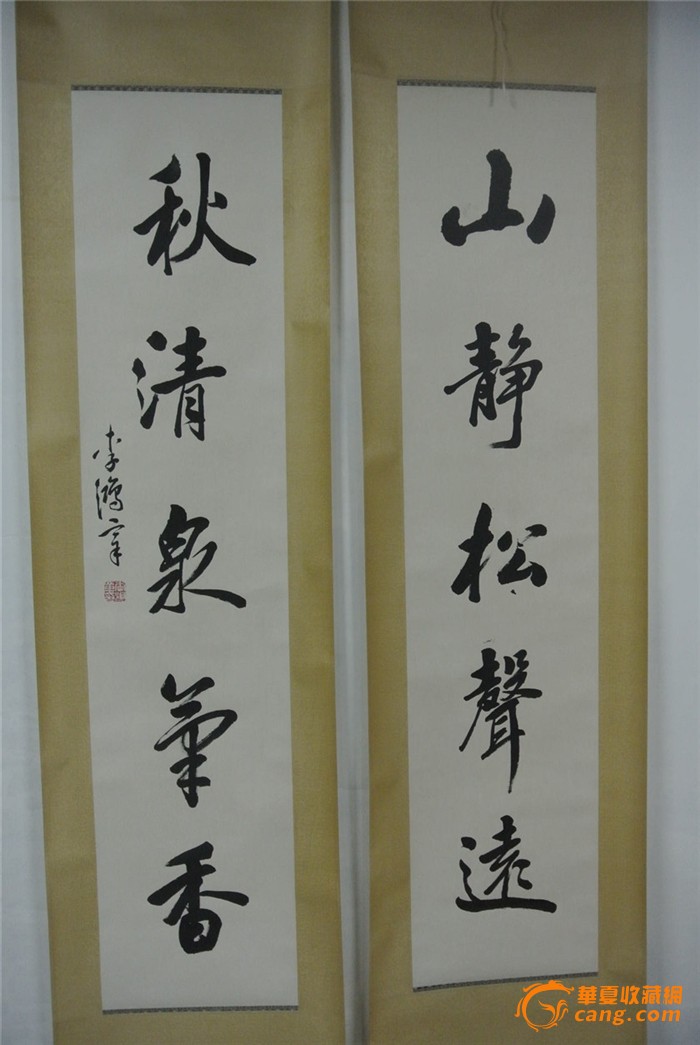 山靜松聲遠
秋清泉氣香
李鴻章
華夏收藏網
cang.com